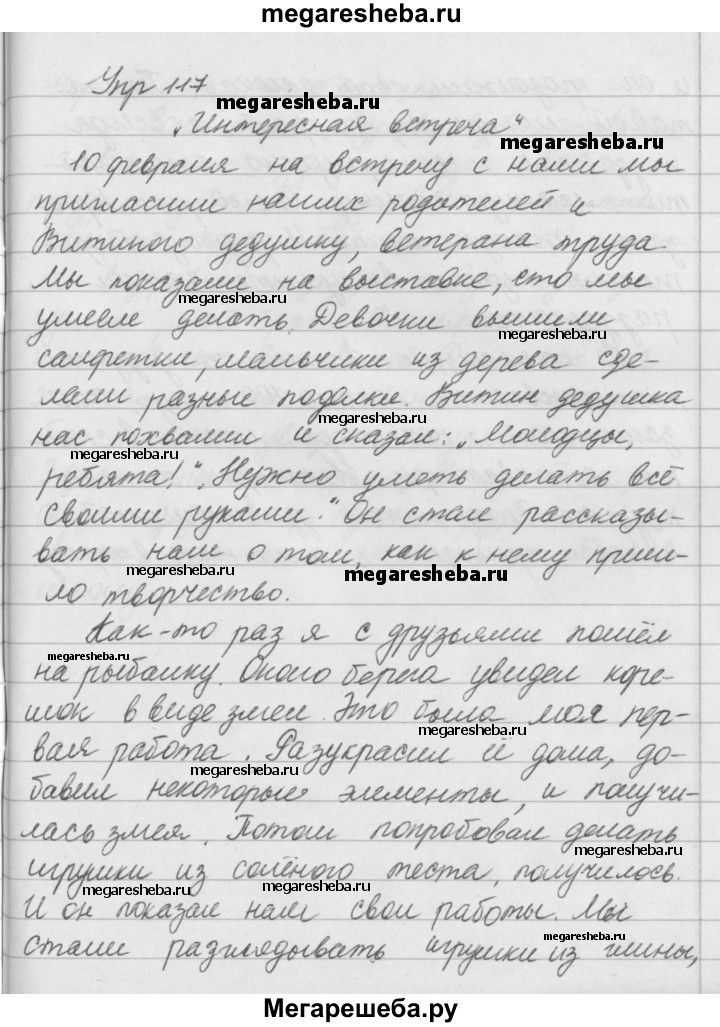 megaresheba.ru
Упр 117
megaresheba.ru
„Интересная встреча“
10 февраля на встречу с нами мы
пригласили наших родителей и
Витиного дедушку, ветерана труда.
Мы показали на выставке, что мы
megaresheba.ru
умеем делать. Девочки вышили
салфетки, мальчики из дерева сде-
megaresheba.ru
лали разные поделки. Витин дедушка
megaresheba.ru
нас похвалил и сказал: „Молодцы,
megaresheba.ru
ребята!“. „Нужно уметь делать всё
своими руками.“ Он стал рассказы-
вать нам о том, как к нему приш-
megaresheba.ru
megaresheba.ru
ло творчество.
Как-то раз я с друзьями пошёл
megaresheba.ru
на рыбалку. Около берега увидел коре-
megaresheba.ru
шок в виде змеи. Это была моя пер-
megaresheba.ru
вая работа. Разукрасил её дома, до-
megaresheba.ru
бавил некоторые элементы, и получи-
лась змея. Потом попробовал делать
megaresheba.ru
игрушки из солёного теста, получилось.
megaresheba.ru
megaresheba.ru
И он показал нам свои работы. Мы
megaresheba.ru
стали разглядывать игрушки из глины,
Мегарешеба.ру